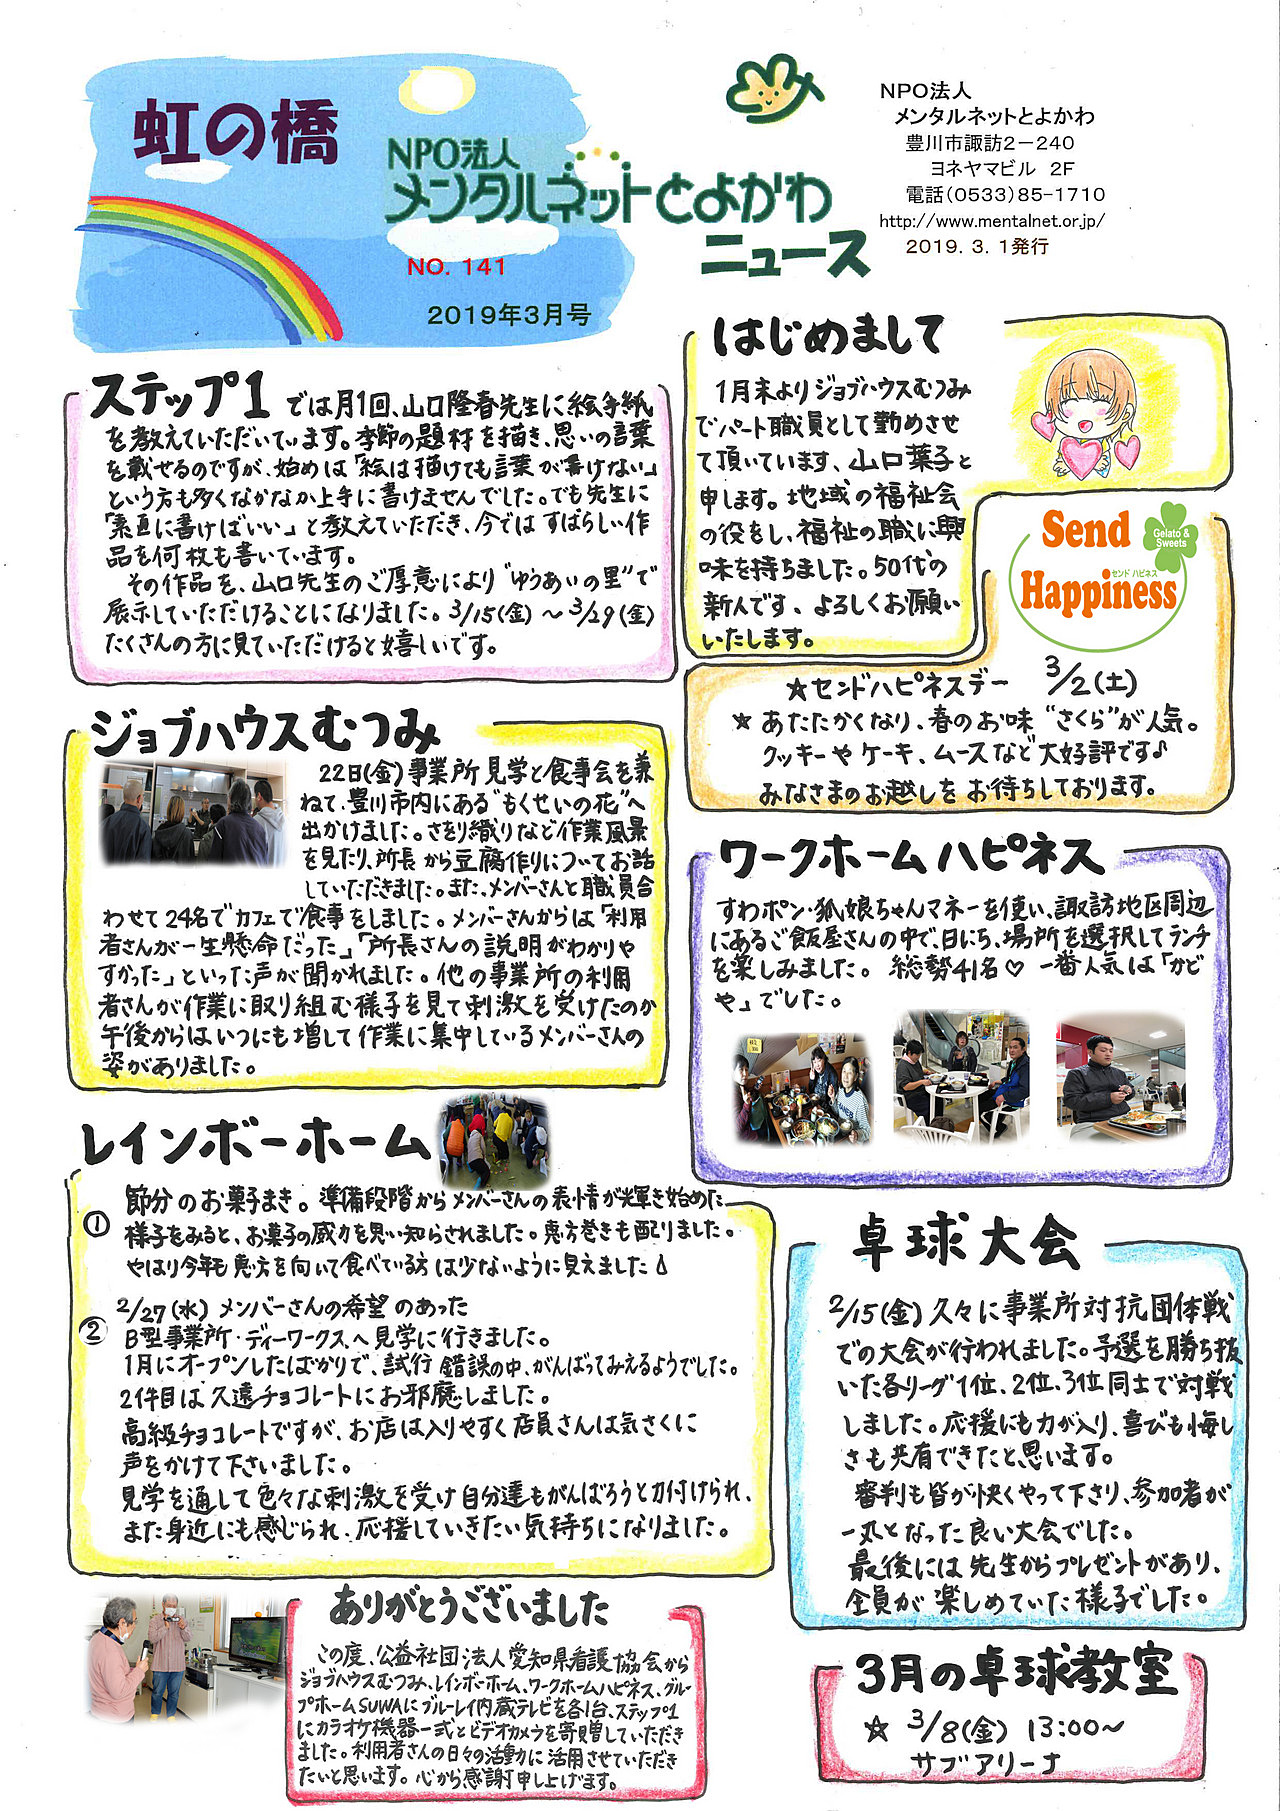 虹の橋
NPO法人
メンタルネットとよかわ
ニュース
NO. 141
2019年3月号
NPO法人
メンタルネットとよかわ
豊川市諏訪2－240
ヨネヤマビル 2F
電話(0533)85-1710
http://www.mentalnet.or.jp/
2019. 3. 1発行
ステップ1 では月1回、山口隆春先生に絵手紙
を教えていただいています。季節の題材を描き、思いの言葉
を載せるのですが、始めは「絵は描けても言葉が書けない」
という方も多くなかなか上手に書けませんでした。でも先生に
「素直に書けばいい」と教えていただき、今ではすばらしい作
品を何枚も書いています。
その作品を、山口先生のご厚意により“ゆうあいの里”で
展示していただけることになりました。3/15(金)～3/29(金)
たくさんの方に見ていただけると嬉しいです。
はじめまして
1月末よりジョブハウスむつみ
でパート職員として勤めさせ
て頂いています、山口葉子と
申します。地域の福祉会
の役をし、福祉の職に興
味を持ちました。50代の
新人です、よろしくお願い
いたします。
Send
Happiness
Gelato &
Sweets
センド ハピネス
☆センドハピネスデー 3/2(土)
☆ あたたかくなり、春のお味“さくら”が人気。
クッキーやケーキ、ムースなど大好評です♪
みなさまのお越しをお待ちしております。
ジョブハウスむつみ
22日(金)事業所見学と食事会を兼
ねて、豊川市内にある“もくせいの花”へ
出かけました。さをり織りなど作業風景
を見たり、所長から豆腐作りについてお話
していただきました。また、メンバーさんと職員合
わせて24名でカフェで食事をしました。メンバーさんからは「利用
者さんが一生懸命だった」「所長さんの説明がわかりや
すかった」といった声が聞かれました。他の事業所の利用
者さんが作業に取り組む様子を見て刺激を受けたのか
午後からはいつにも増して作業に集中しているメンバーさんの
姿がありました。
ワークホームハピネス
すわポン・狐娘ちゃんマネーを使い、諏訪地区周辺
にあるご飯屋さんの中で、日にち、場所を選択してランチ
を楽しみました。 総勢41名♡ 一番人気は「かど
や」でした。
レインボーホーム
① 節分のお菓子まき。準備段階からメンバーさんの表情が輝き始めた
様子をみると、お菓子の威力を思い知らされました。恵方巻きも配りました。
やはり今年も恵方を向いて食べている方は少ないように見えました
② 2/27(水) メンバーさんの希望のあった
B型事業所・ディーワークスへ見学に行きました。
1月にオープンしたばかりで、試行錯誤の中、がんばってみえるようでした。
2件目は久遠チョコレートにお邪魔しました。
高級チョコレートですが、お店は入りやすく店員さんは気さくに
声をかけて下さいました。
見学を通して色々な刺激を受け自分達もがんばろうと力付けられ、
また身近にも感じられ、応援していきたい気持ちになりました。
卓球大会
2/15(金)久々に事業所対抗団体戦
での大会が行われました。予選を勝ち抜
いた各リーグ1位、2位、3位同士で対戦
しました。応援にも力が入り、喜びも悔し
さも共有できたと思います。
審判も皆が快くやって下さり、参加者が
一丸となった良い大会でした。
最後には先生からプレゼントがあり、
全員が楽しめていた様子でした。
ありがとうございました
この度、公益社団法人愛知県看護協会から
ジョブハウスむつみ、レインボーホーム、ワークホームハピネス、グルー
プホームSUWAにブルーレイ内蔵テレビを各1台、ステップ1
にカラオケ機器一式とビデオカメラを寄贈していただき
ました。利用者さんの日々の活動に活用させていただき
たいと思います。心から感謝申し上げます。
3月の卓球教室
☆ 3/8(金) 13:00～
サブアリーナ